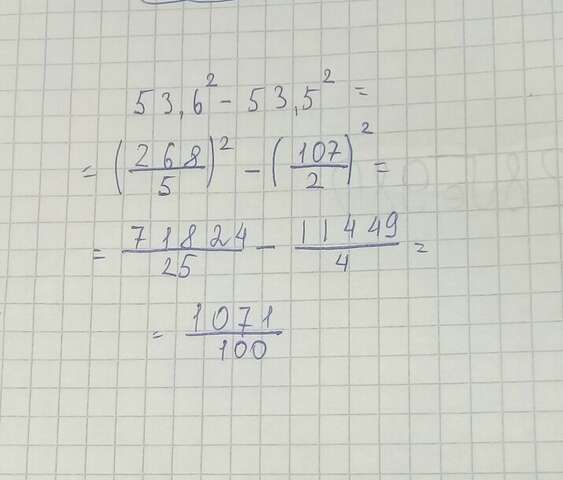 53,6² - 53,5² =
= (268/5)² - (107/2)² =
= 71824/25 - 11449/4 =
= 1071/100